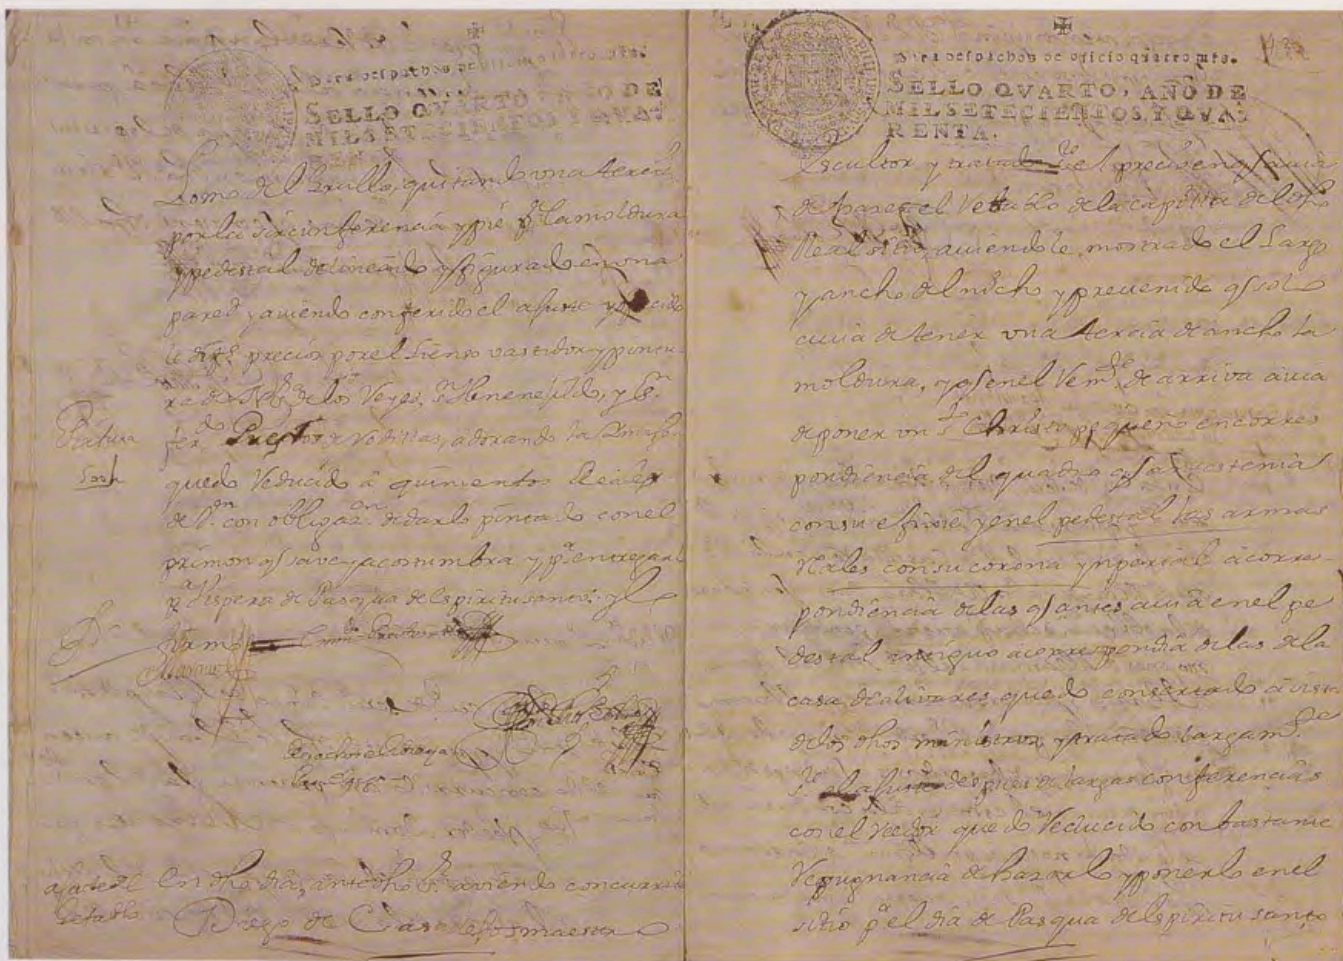 Para despachos de oficio quatro mrs.
SELLO QVARTO, AÑO DE
MIL SETECIENTOS Y QVA
Lomo del Brullo, quitando una tercia
por la circunferencia y pie pª la moldura
y pedestal delineado y figurado en una
pared y aviendo conferido el ajuste y
precios por el Lienzo vastidor y pintu
ra de los Reyes, Sn Hermenexildo, y Sn
ferdo Puestos de Rodillas, adorando la
quedo Reducido â quinientos Reales
de Vn con obligazon de darlo pintado con el
primor qe save y acostumbra y pª entregarl
pª Vispera de Pasqua del spiritu santo, y lo
firmo
Pintura
500
ajuste del
Retablo
En dho dia, ante dho Sr aviendo concurrido
Diego de maestro
Para despachos de oficio quatro mrs.
SELLO QVARTO, AÑO DE
MIL SETECIENTOS, Y QVA
RENTA.
Escultor y tratado el precio en qe avia
de el Retablo de la capillita de dho
Real sitio, aviendole mostrado el Largo
y ancho del nicho y prevenido qe solo
avia de tener una tercia de ancho la
moldura, y qe en el Remte de arriva avia
de poner un Sto Christo pequeño en corres
pondiencia del quadro qe antes tenia
con su efixie y en el pedestal las armas
Rales con su corona ynperial â corres
pondiencia de las qe antes avia en el pe
destal antiguo a correspondia de las de la
casa de olivares quedo consertado â vista
de los dhos ministros y tratado largamte
el ajuste despues de largas conferencias
con el Veedor quedo Reducido con bastante
Repugnancia de hazerlo y ponerlo en el
sitio pª el dia de Pasqua del spiritu santo